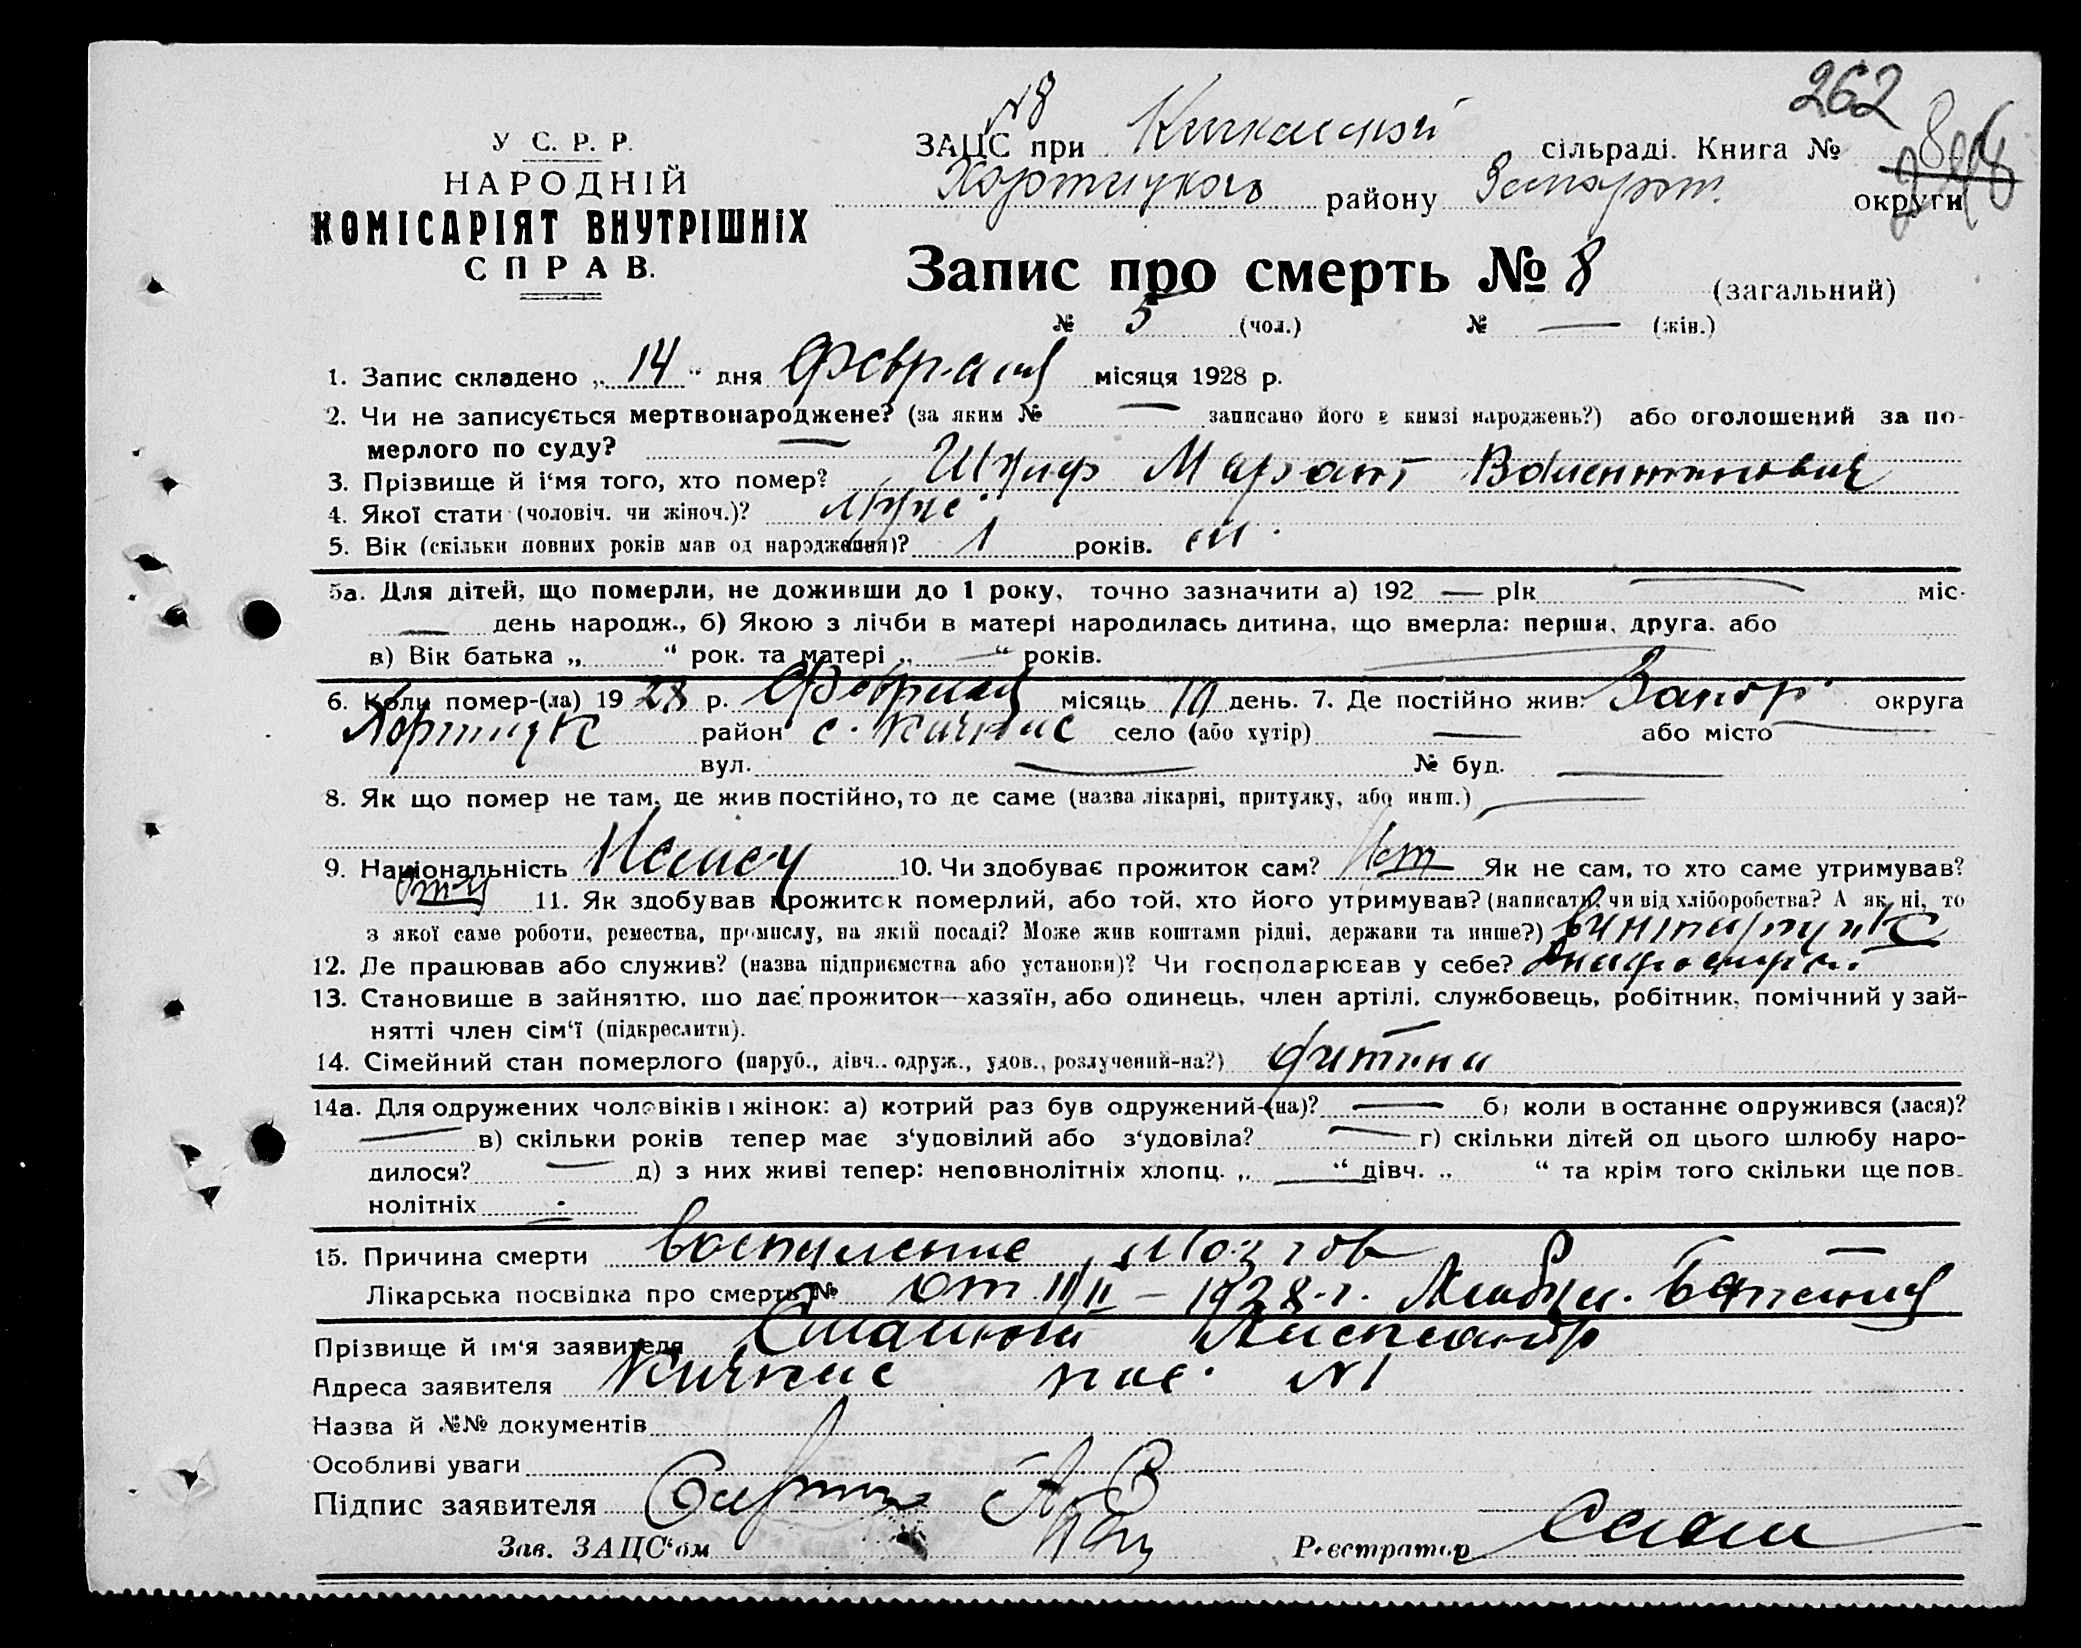 262
№ 8
У С. Р. Р.
НАРОДНІЙ
КОМІСАРІЯТ ВНУТРІШНІХ
СПРАВ.
ЗАЦС при Кичкасской сільраді. Книга №
Хортицкого району Запорож. округи
Запис про смерть № 8 (загальний)
№ 5 (чол.) № — (жін.)
1. Запис складено „ 14 “ дня Февраля місяця 1928 р.
2. Чи не записується мертвонароджене? (за яким № — записано його в книзі народжень?) або оголошений за по-
мерлого по суду? —
3. Прізвище й і‘мя того, хто помер? Валентинович
4. Якої стати (чоловіч. чи жіноч.)? Муж.
5. Вік (скільки повних років мав од народження)? 1 років.
5а. Для дітей, що померли, не доживши до 1 року, точно зазначити а) 192 — рік — міс.
— день народж., б) Якою з лічби в матері народилась дитина, що вмерла: перша, друга. або
в) Вік батька „ “ рок. та матері „ — “ років.
6. Коли помер-(ла) 19 28 р. Февраля місяць день. 7. Де постійно жив: Запор. округа
Хортицк район с. Кичкас село (або хутір) — або місто —
вул. — № буд. —
8. Як що помер не там, де жив постійно, то де саме (назва лікарні, притулку, або инш.) —
9. Національність Немец 10. Чи здобуває прожиток сам? Нет Як не сам, то хто саме утримував?
Отец 11. Як здобував прожиток померлий, або той, хто його утримував? (написати, чи від хліборобства? А як ні, то
з якої саме роботи, ремества, промислу, на якій посаді? Може жив коштами рідні, держави та инше?)
12. Де працював або служив? (назва підприємства або установи)? Чи господарював у себе? Днепрострой
13. Становище в зайняттю, що дає прожиток—хазяїн, або одинець, член артілі, службовець, робітник, помічний у зай-
нятті член сім‘ї (підкреслити).
14. Сімейний стан померлого (паруб., дівч.. одруж., удов., розлучений-на?) дитина
14а. Для одружених чоловіків і жінок: а) котрий раз був одружений-(на)? — б) коли востаннє одружився (лася)?
— в) скільки років тепер має з‘удовілий або з‘удовіла? — г) скільки дітей од цього шлюбу наро-
дилося? — д) з них живі тепер: неповнолітніх хлопц. „ — “ дівч. „ “ та крім того скільки ще пов-
нолітніх —
15. Причина смерти воспаление мозгов
Лікарська посвідка про смерть № от 11/II — 1928 г.
Прізвище й ім‘я заявителя
Адреса заявителя Кичкас пос. № 1
Назва й №№ документів
Особливі уваги
Підпис заявителя
Зав. ЗАЦС‘ом Реєстратор